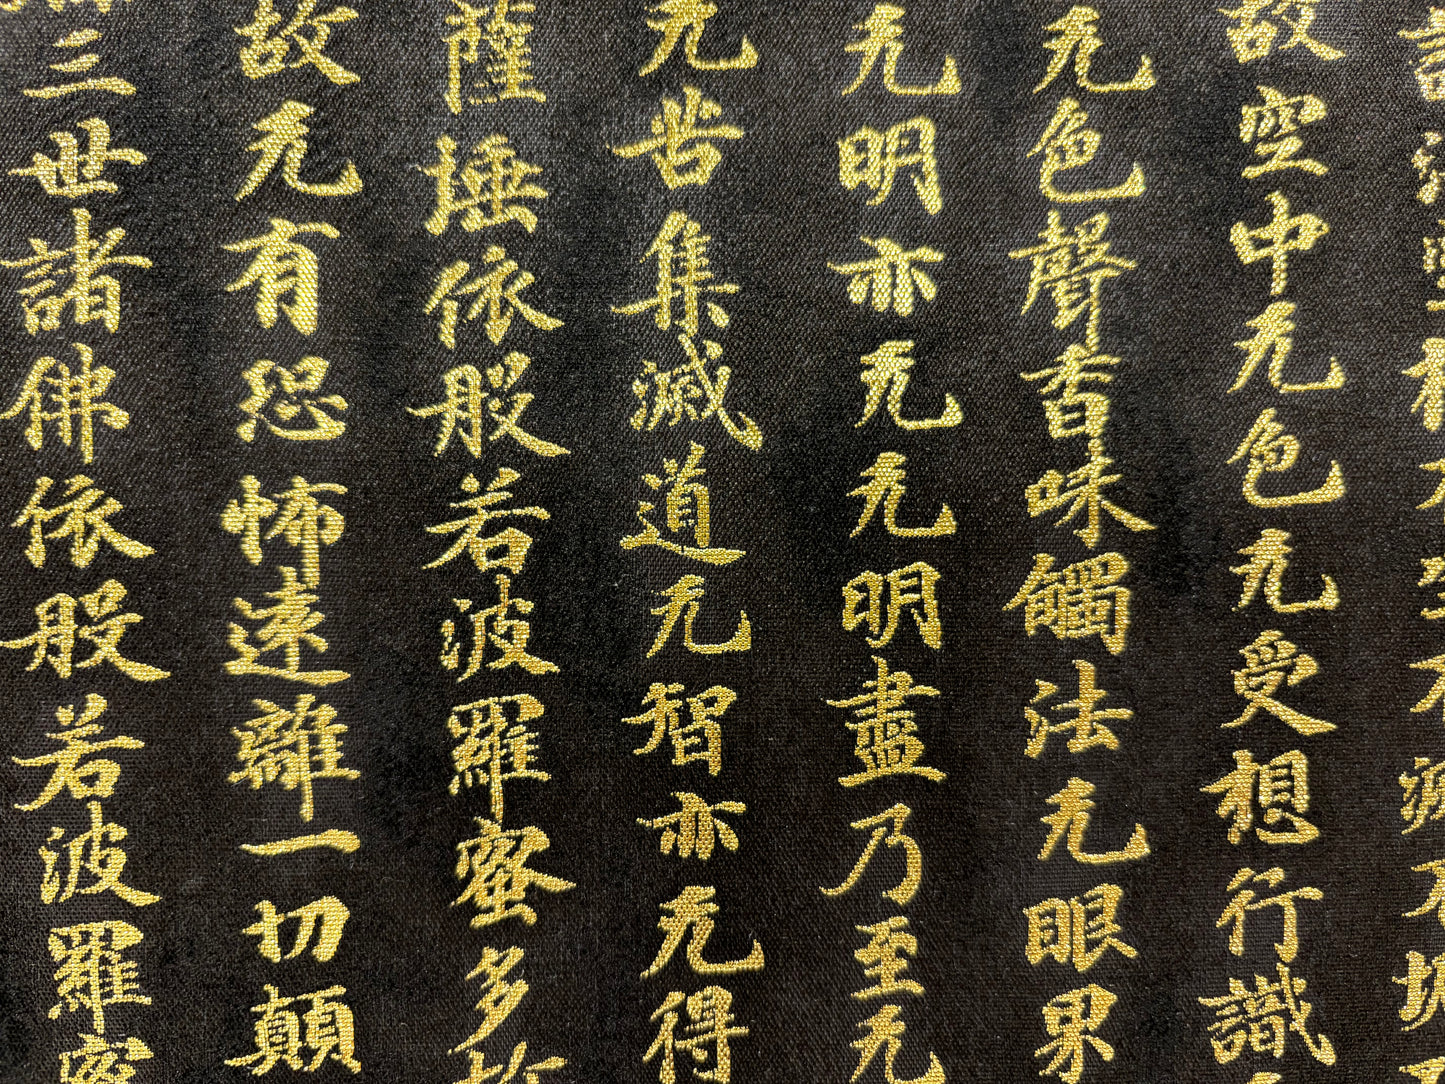 故空中无色无受想行識
无色聲香味觸法无眼界
无明亦无无明盡乃至无
无苦集滅道无智亦无得
薩埵依般若波羅蜜多故
故无有恐怖遠離一切顛
三世諸佛依般若波羅蜜